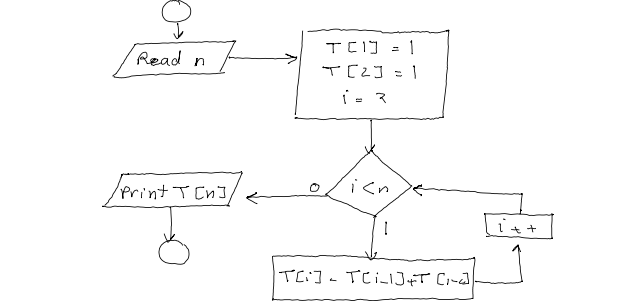 Read n
T[1] = 1
T[2] = 1
i = 3
i < n
0
1
Print T[n]
i++
T[i] = T[i-1]+T[i-2]